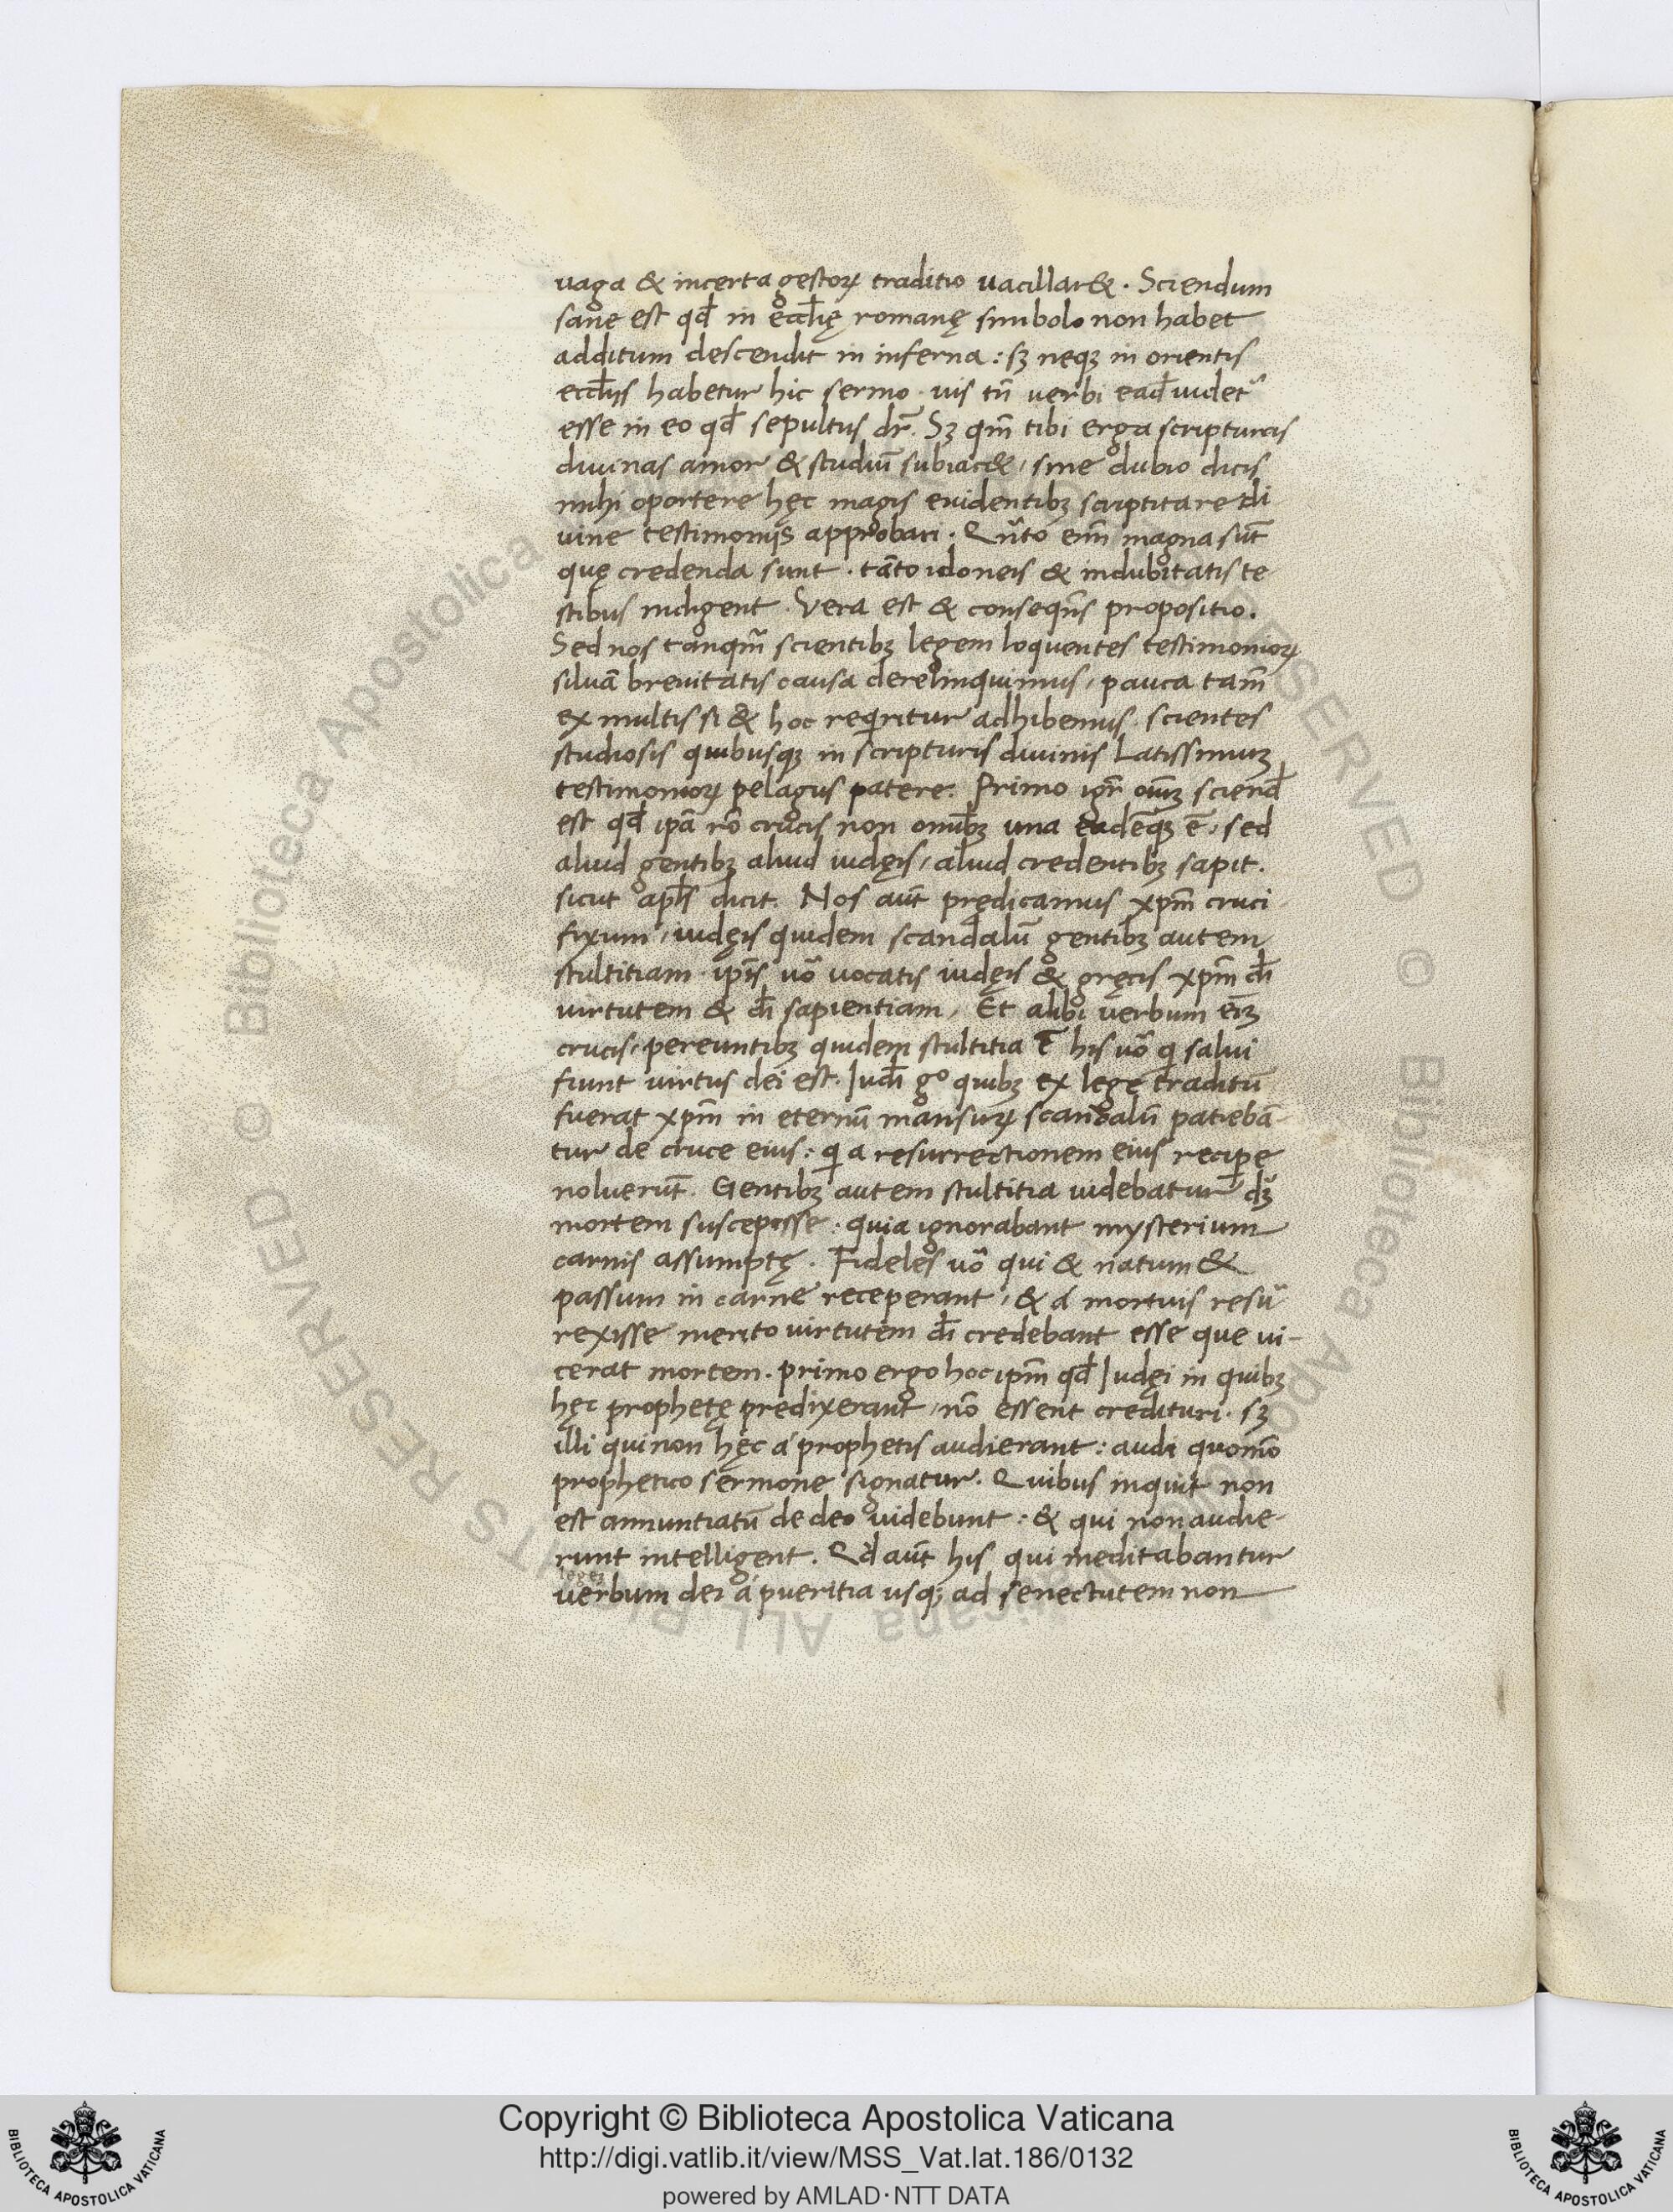 uaga & incerta gestorꝝ traditio uacillar&. Sciendum
sane est qđ in eccłię romanę simbolo non habet
additum descendit in inferna: sꝫ neqꝫ in orientis
eccłijs habetur hic sermo. uis tñ uerbi eađ uidet᷑
esse in eo qđ sepultus dr̄. Sꝫ qm̄ tibi erga scripturas
diuinas amor & studiū subiac&, sine dubio dicis
mihi oportere hęc magis euidentibꝫ scriptitare di
uine testimonijs approbari. Qn̄to eni̅ magna sūt
quę credenda sunt. tāto idoneis & indubitatis te
stibus indigent. Vera est & conseqn̄s propositio.
Sed nos tanqm̄ scientibꝫ legem loquentes testimoniorꝝ
siluā breuitatis causa derelinquimus, pauca tam̄
ex multis si & hoc reqͥritur adhibemus. scientes
studiosis quibusqꝫ in scripturis diuinis Latissimuꝫ
testimoniorꝝ pelagus patere. Primo igr̄ om̄ꝫ sciend̄
est qđ ipā rō crucis non omībꝫ una eadēqꝫ ē, sed
aliud gentibꝫ aliud iudęis, aliud credentibꝫ sapit.
sicut apłs dicit. Nos aūt prędicamus xpm̄ cruci
fixum, iudęis quidem scandalū gentibꝫ autem
stultitiam. ip̄is uō uocatis iudęis & gręcis xpm̄ di̅
uirtutem & di̅ sapientiam, Et alibi uerbum eīꝫ
crucis, pereuntibꝫ quidem stultitia ē his uō qͥ salui
fiunt uirtus dei est. Iudi̅ gͦ quibꝫ ex lege traditū
fuerat xpm̄ in eternū mansurꝝ scandalū patiebā-
tur de cruce eius: qͥ a resurrectionem eius recip̱e
noluerūt. Gentibꝫ autem stultitia uidebatur dꝫ
mortem suscepisse: quia ignorabant mysterium
carnis assumptę. Fideles uō qui & natum &
passum in carne receperant, & a mortuis resū
rexisse merito uirtutem di̅ credebant esse que ui-
cerat mortem. primo ergo hoc ipm̄ qđ Iudęi in quibꝫ
hęc prophetę predixerant, nō essent credituri. sꝫ
illi qui non hęc á prophetis audierant: audi quomō
prophetico sermone signatur. Quibus inquit non
est annuntiatū de deo uidebunt: & qui non audie-
runt intelligent. Qđ aūt his qui meditabantur
legeꝫ
uerbum dei á pueritia usqꝫ ad senectutem non
Copyright © Biblioteca Apostolica Vaticana
http://digi.vatlib.it/view/MSS_Vat.lat.186/0132
powered by AMLAD·NTT DATA